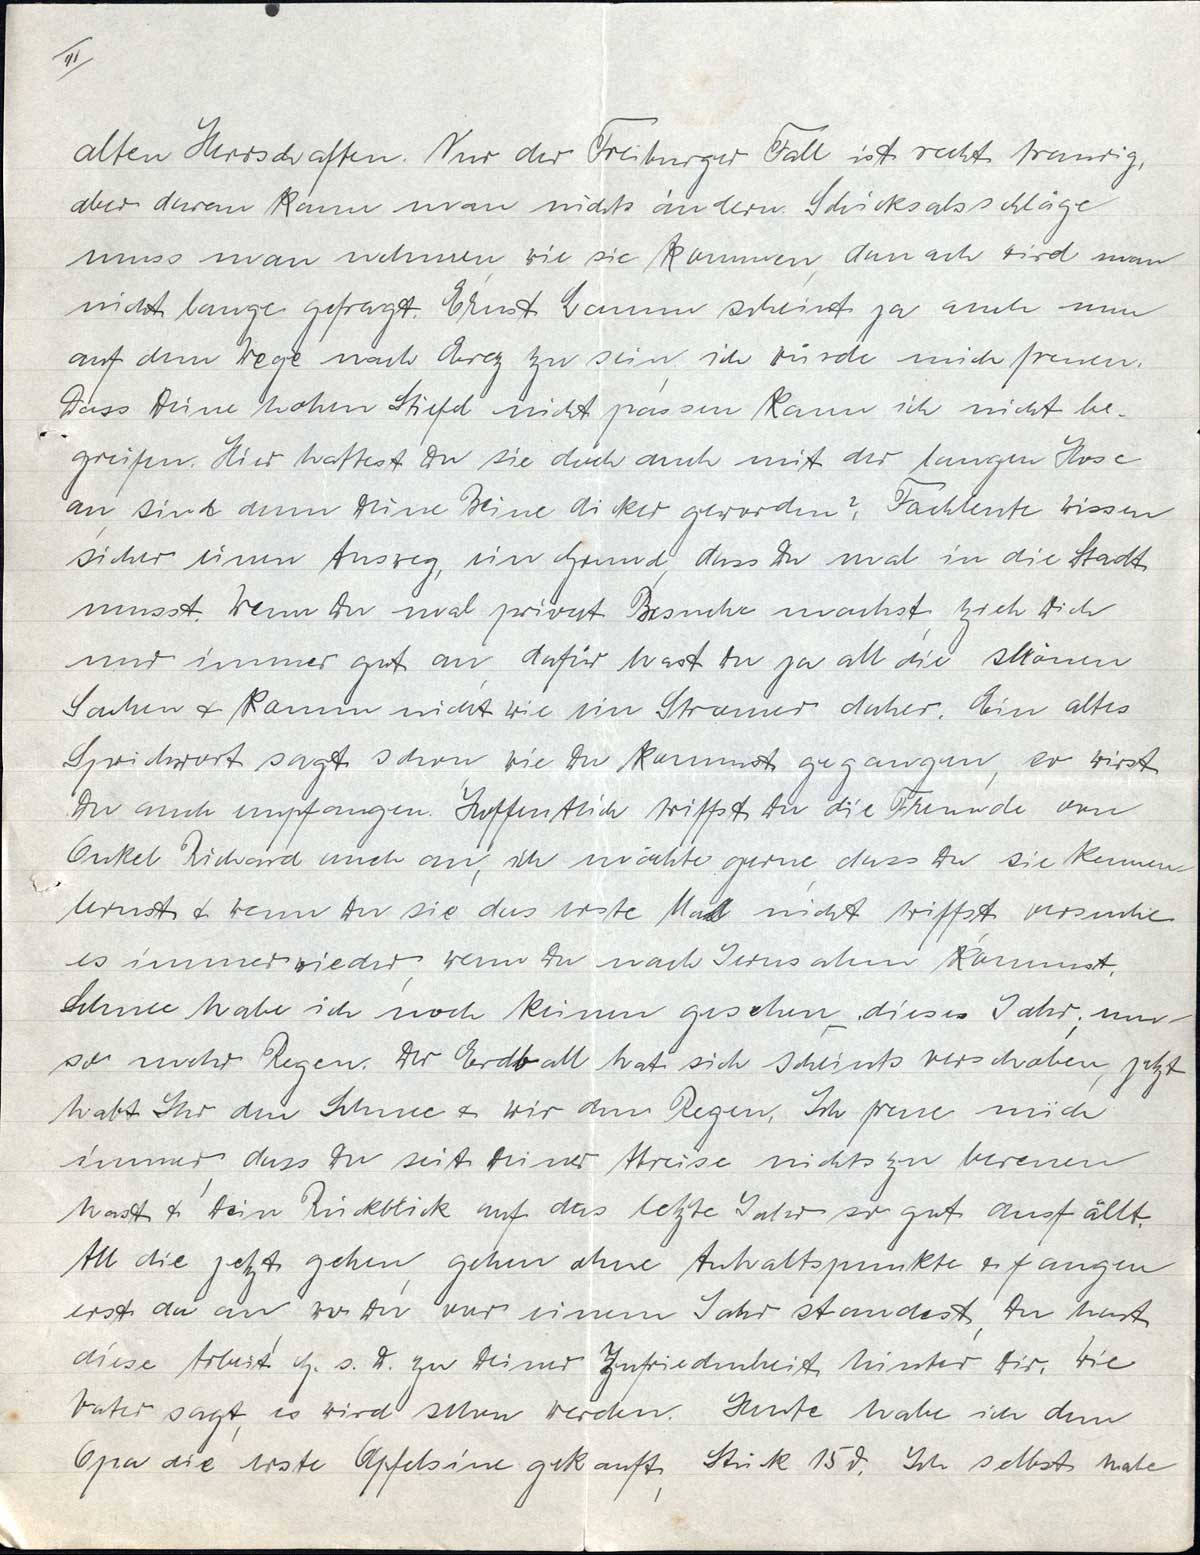 II
alten Herrschaften. Nur der Freiburger Fall ist recht traurig,
aber daran kann man nichts ändern. Schicksalsschläge
muss man nehmen, wie sie kommen, danach wird man
nicht lange gefragt. Ernst Lamm scheint ja auch nun
auf dem Wege nach Erez zu sein, ich würde mich freuen.
Dass Deine hohen Stiefel nicht passen kann ich nicht be-
greifen. Hier hattest Du sie doch auch mit der langen Hose
an, sind denn Deine Beine dicker geworden?, Fachleute wissen
sicher einen Ausweg, ein Grund, dass Du mal in die Stadt
musst. Wenn Du mal privat Besuche machst, zieh Dich
nur immer gut an, dafür hast Du ja all die schönen
Sachen & komm nicht wie ein Stromer daher. Ein altes
Sprichwort sagt schon, wie Du kommst gegangen, so wirst
Du auch empfangen. Hoffentlich triffst Du die Freunde von
Onkel Richard auch an, ich möchte gerne, dass Du sie kennen
lernst & wenn Du sie das erste Mal nicht triffst, versuche
es immer wieder, wenn Du nach Jerusalem kommst.
Schnee habe ich noch keinen gesehen, dieses Jahr, um-
so mehr Regen. Der Erdball hat sich scheints verschoben, jetzt
habt Ihr den Schnee & wir den Regen. Ich freue mich
immer, dass Du seit Deiner Abreise nichts zu bereuen
hast & Dein Rückblick auf das letzte Jahr so gut ausfällt.
All die jetzt gehen, gehen ohne Anhaltspunkte & fangen
erst da an wo Du vor einem Jahr standest, Du hast
diese Arbeit G. s. D. zu Deiner Zufriedenheit hinter Dir. Wie
Vater sagt, es wird schon werden. Heute habe ich dem
Opa die erste Apfelsine gekauft, Stück 15 d. Ich selbst habe